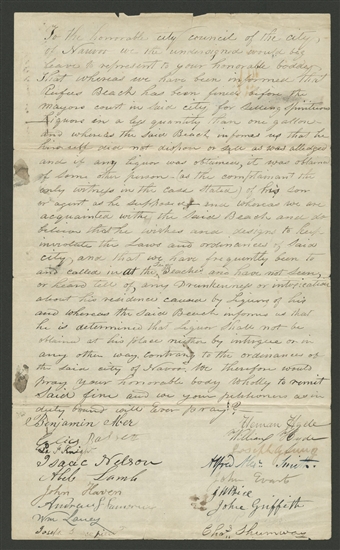 To the honorable city council of the city,
of Nauvoo we the undersigned would beg
leave to represent to your honorable boddy
That whereas we have been informed that
Rufus Beach has been fined before the
mayors court in said city for selling spiritous
Liquors in a less quantity than one gallon
and whereas the said Beach informs us that he
himself did not dispose or sell as was alledged
and if any liquor was obtained, it was obtained
of some other person (as the complainant the
only witness in the case stated) of his son
or agent as he supposed and whereas we are
acquainted with the said Beach and do
believe that he wishes and designs to keep
inviolate the Laws and ordinances of said
city, and that we have frequently been to
and called in at the Beaches and have not seen,
or heard tell of any Drunkenness or intoxication
about his residence caused by liquors of his
and whereas the said Beach informs us that
he is determined that Liquor shall not be
obtained at his place neither by intrigue or in
any other way contrary to the ordinances of
the said city of Nauvoo, We therefore would
pray your honorable body wholly to remit
said fine and we your petitioners as in
duty bound will ever pray
Benjamin
Heman Hyde
William Hyde
Joseph G.
Isaac Nelson
Alfred
Abel Lamb
John
John Haven
John Griffith
Andrew
Wm
Chas. Shumway